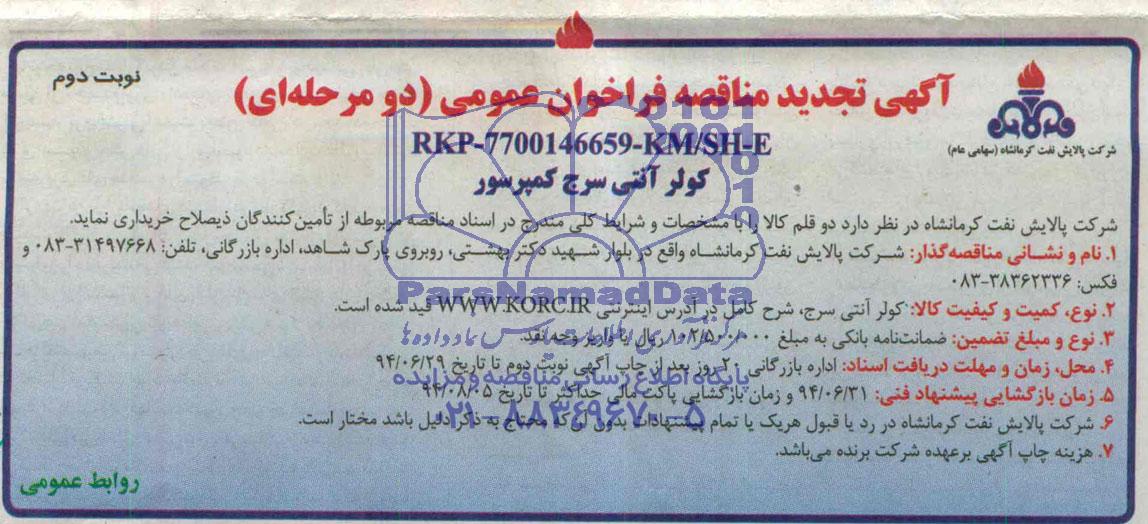 نوبت دوم
آگهی تجدید مناقصه فراخوان عمومی (دو مرحله‌ای)
RKP-7700146659-KM/SH-E
کولر آنتی سرج کمپرسور
شرکت پالایش نفت کرمانشاه (سهامی عام)
شرکت پالایش نفت کرمانشاه در نظر دارد دو قلم کالا را با مشخصات و شرایط کلی مندرج در اسناد مناقصه مربوطه از تأمین‌کنندگان ذیصلاح خریداری نماید.
۱. نام و نشانی مناقصه‌گذار: شرکت پالایش نفت کرمانشاه واقع در بلوار شهید دکتر بهشتی، روبروی پارک شاهد، اداره بازرگانی، تلفن: ۳۱۴۹۷۶۶۸-۰۸۳ و
فکس: ۳۸۳۶۲۳۳۶-۰۸۳
۲. نوع، کمیت و کیفیت کالا: کولر آنتی سرج، شرح کامل در آدرس اینترنتی WWW.KORC.IR قید شده است.
۳. نوع و مبلغ تضمین: ضمانت‌نامه بانکی به مبلغ ۱۰۲/۵۰۰/۰۰۰ ریال یا واریز وجه نقد.
۴. محل، زمان و مهلت دریافت اسناد: اداره بازرگانی ۲۰ روز بعد از چاپ آگهی نوبت دوم تا تاریخ ۹۴/۰۶/۲۹
۵. زمان بازگشایی پیشنهاد فنی: ۹۴/۰۶/۳۱ و زمان بازگشایی پاکت مالی حداکثر تا تاریخ ۹۴/۰۸/۰۵
۶. شرکت پالایش نفت کرمانشاه در رد یا قبول هریک یا تمام پیشنهادات بدون آن‌که محتاج به ذکر دلیل باشد مختار است.
۷. هزینه چاپ آگهی برعهده شرکت برنده می‌باشد.
روابط عمومی
ParsNamadData
پایگاه اطلاع رسانی مناقصه و مزایده
۰۲۱-۸۸۳۴۹۶۷۰-۵